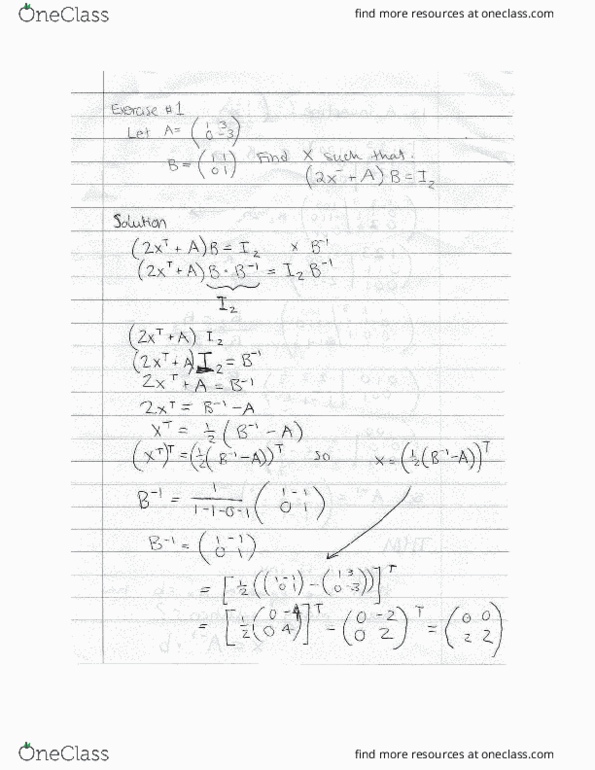 OneClass find more resources at oneclass.com
Exercise #1
Let A= (1 3
0 -3)
B = (1 1
0 1) Find X such that.
(2x^T + A) B = I₂
Solution
(2x^T + A)B = I₂ x B⁻¹
(2x^T + A) B · B⁻¹ = I₂ B⁻¹
I₂
(2x^T + A) I₂
(2x^T + A) I₂ = B⁻¹
2x^T + A = B⁻¹
2x^T = B⁻¹ - A
x^T = 1/2 (B⁻¹ - A)
(x^T)^T = (1/2 (B⁻¹ - A))^T so x = (1/2 (B⁻¹ - A))^T
B⁻¹ = 1/(1-1-0-1) (1 -1
0 1)
B⁻¹ = (1 -1
0 1)
= [1/2 ((1 -1
0 1) - (1 3
0 -3))]^T
= [1/2 (0 -4
0 4)]^T - (0 -2
0 2)^T = (0 0
2 2)
OneClass find more resources at oneclass.com